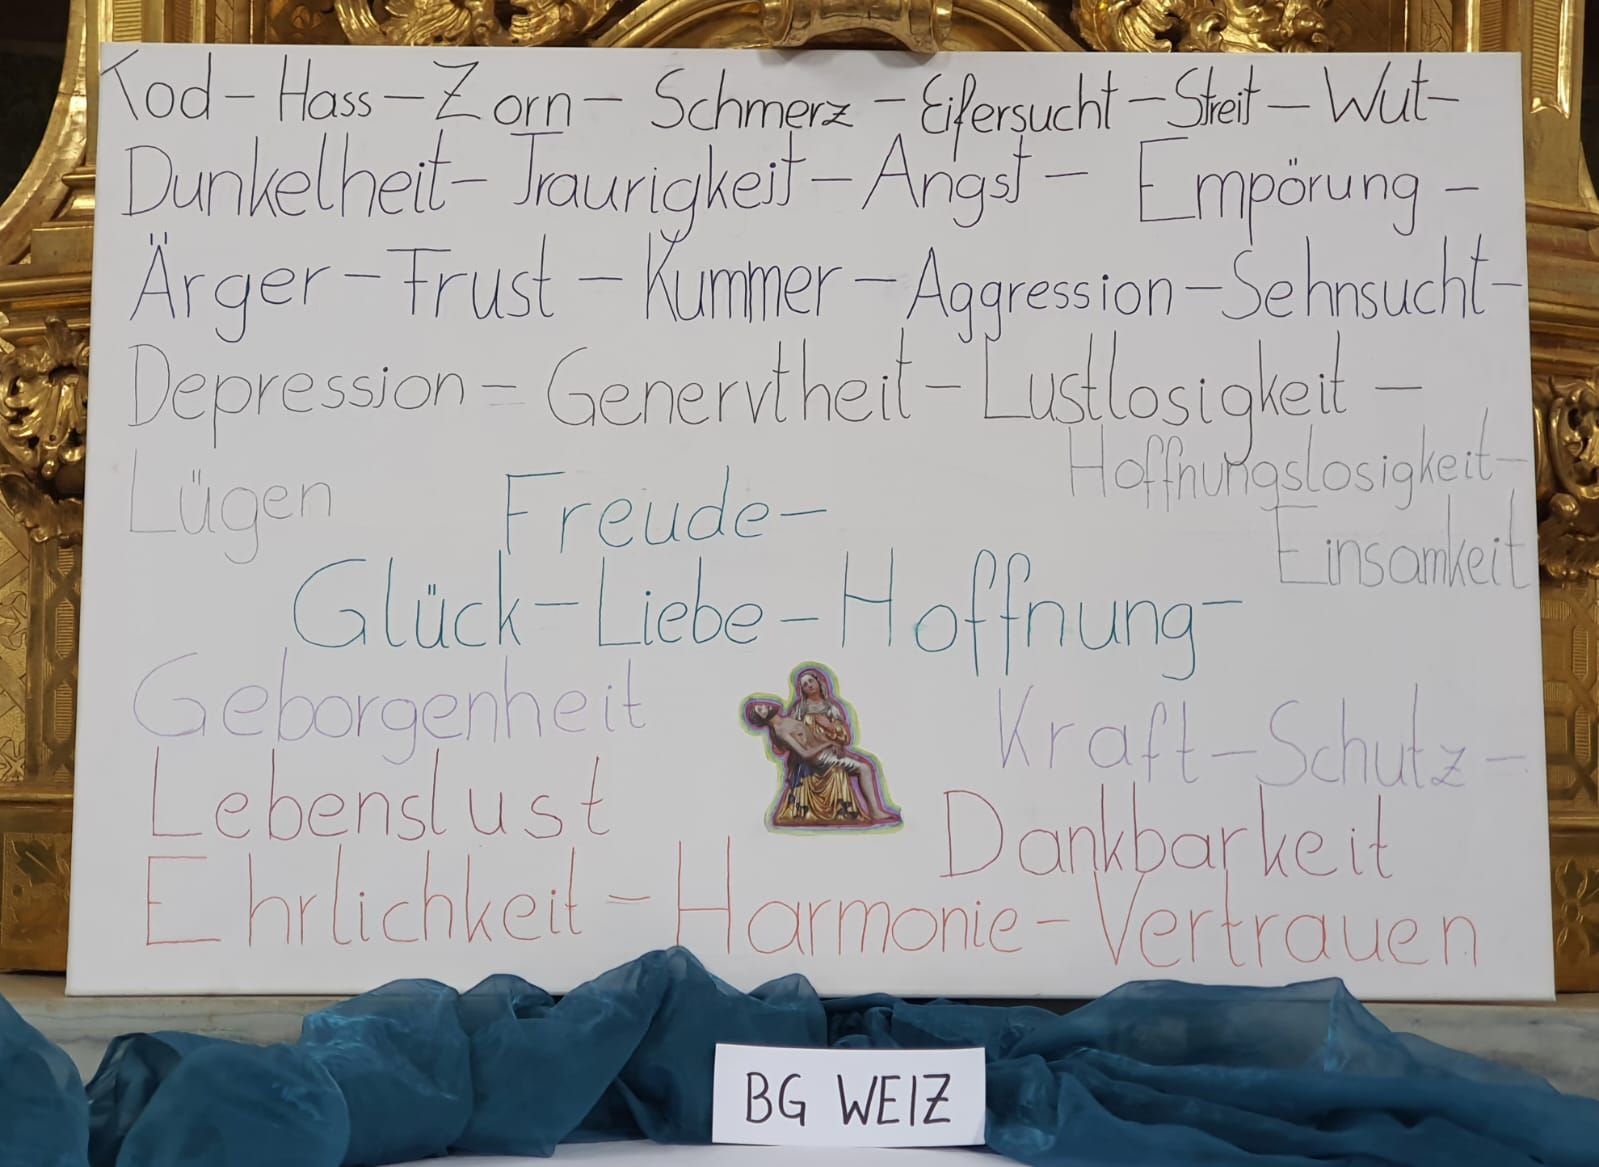 Tod – Hass – Zorn – Schmerz – Eifersucht – Streit – Wut –
Dunkelheit – Traurigkeit – Angst – Empörung –
Ärger – Frust – Kummer – Aggression – Sehnsucht –
Depression – Genervtheit – Lustlosigkeit –
Hoffnungslosigkeit –
Lügen Freude –
Einsamkeit
Glück – Liebe – Hoffnung –
Geborgenheit Kraft – Schutz –
Lebenslust Dankbarkeit
Ehrlichkeit – Harmonie – Vertrauen
BG WEIZ